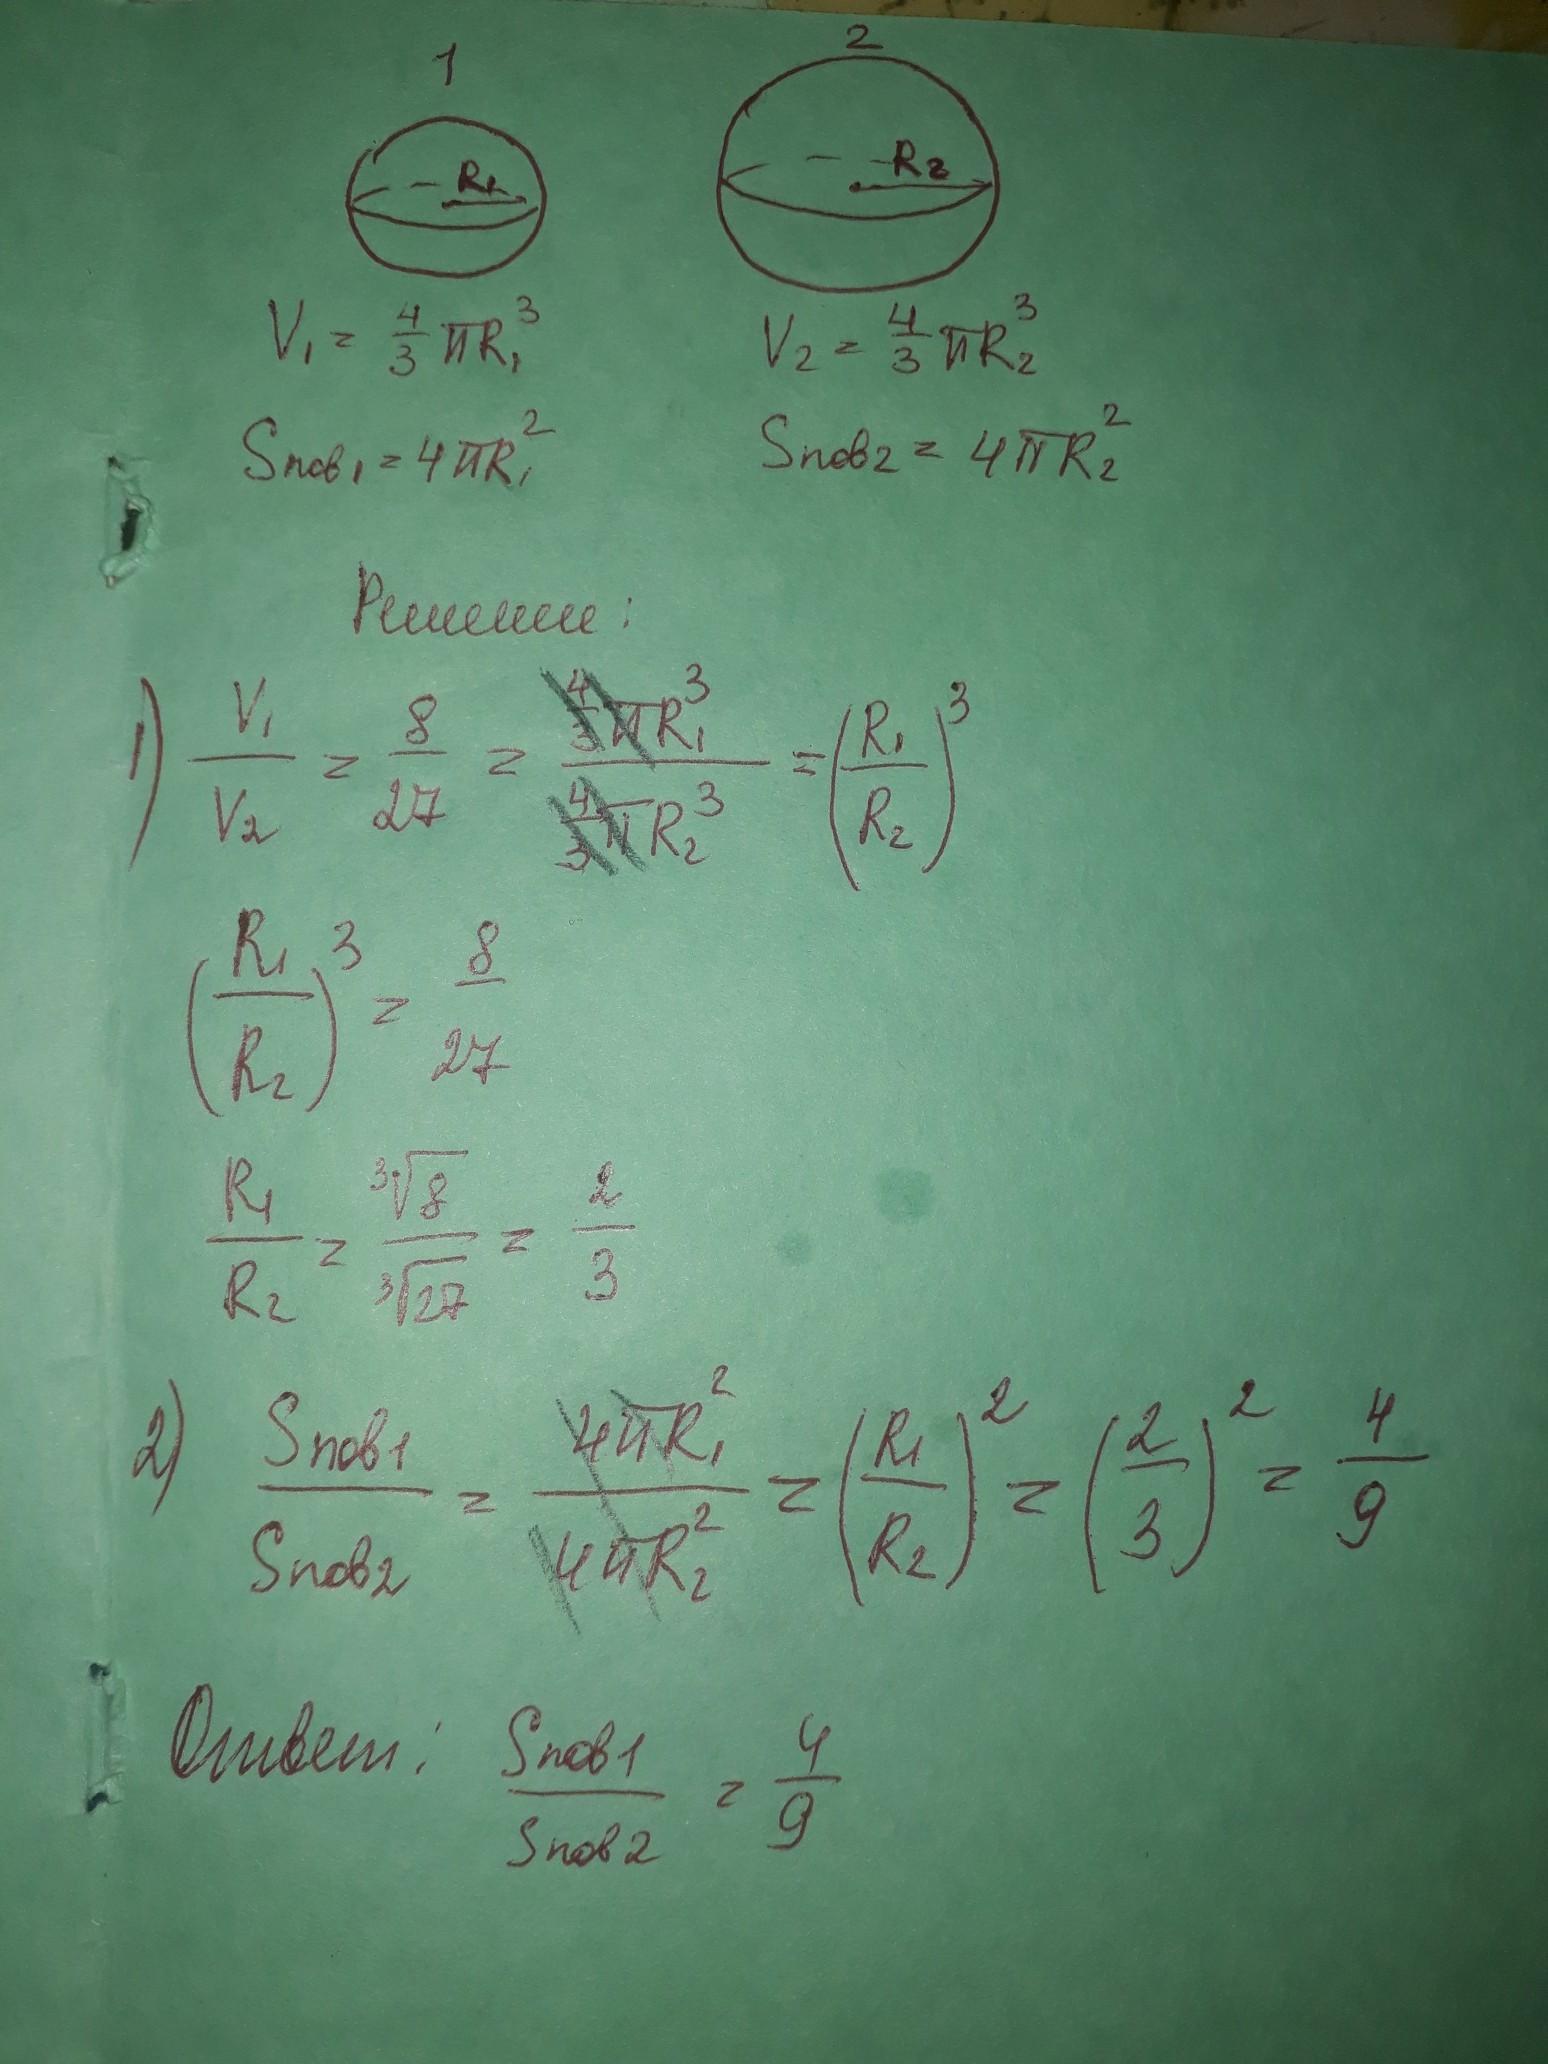 1 2
R₁ R₂
V₁ = 4/3 πR₁³ V₂ = 4/3 πR₂³
Sпов1 = 4πR₁² Sпов2 = 4πR₂²
Решение:
1) V₁/V₂ = 8/27 = (4/3 πR₁³)/(4/3 πR₂³) = (R₁/R₂)³
(R₁/R₂)³ = 8/27
R₁/R₂ = ³√8/³√27 = 2/3
2) Sпов1/Sпов2 = 4πR₁²/4πR₂² = (R₁/R₂)² = (2/3)² = 4/9
Ответ: Sпов1/Sпов2 = 4/9